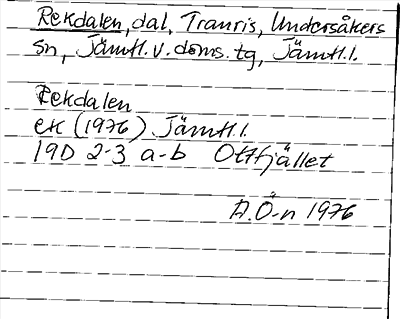 Rekdalen, dal, Tranris, Undersåkers
sn, Jämtl. v. doms. tg, Jämtl. l.
Rekdalen
ek (1976) Jämtl. l.
19D 2-3 a-b Ottfjället
A. Ö-n 1976